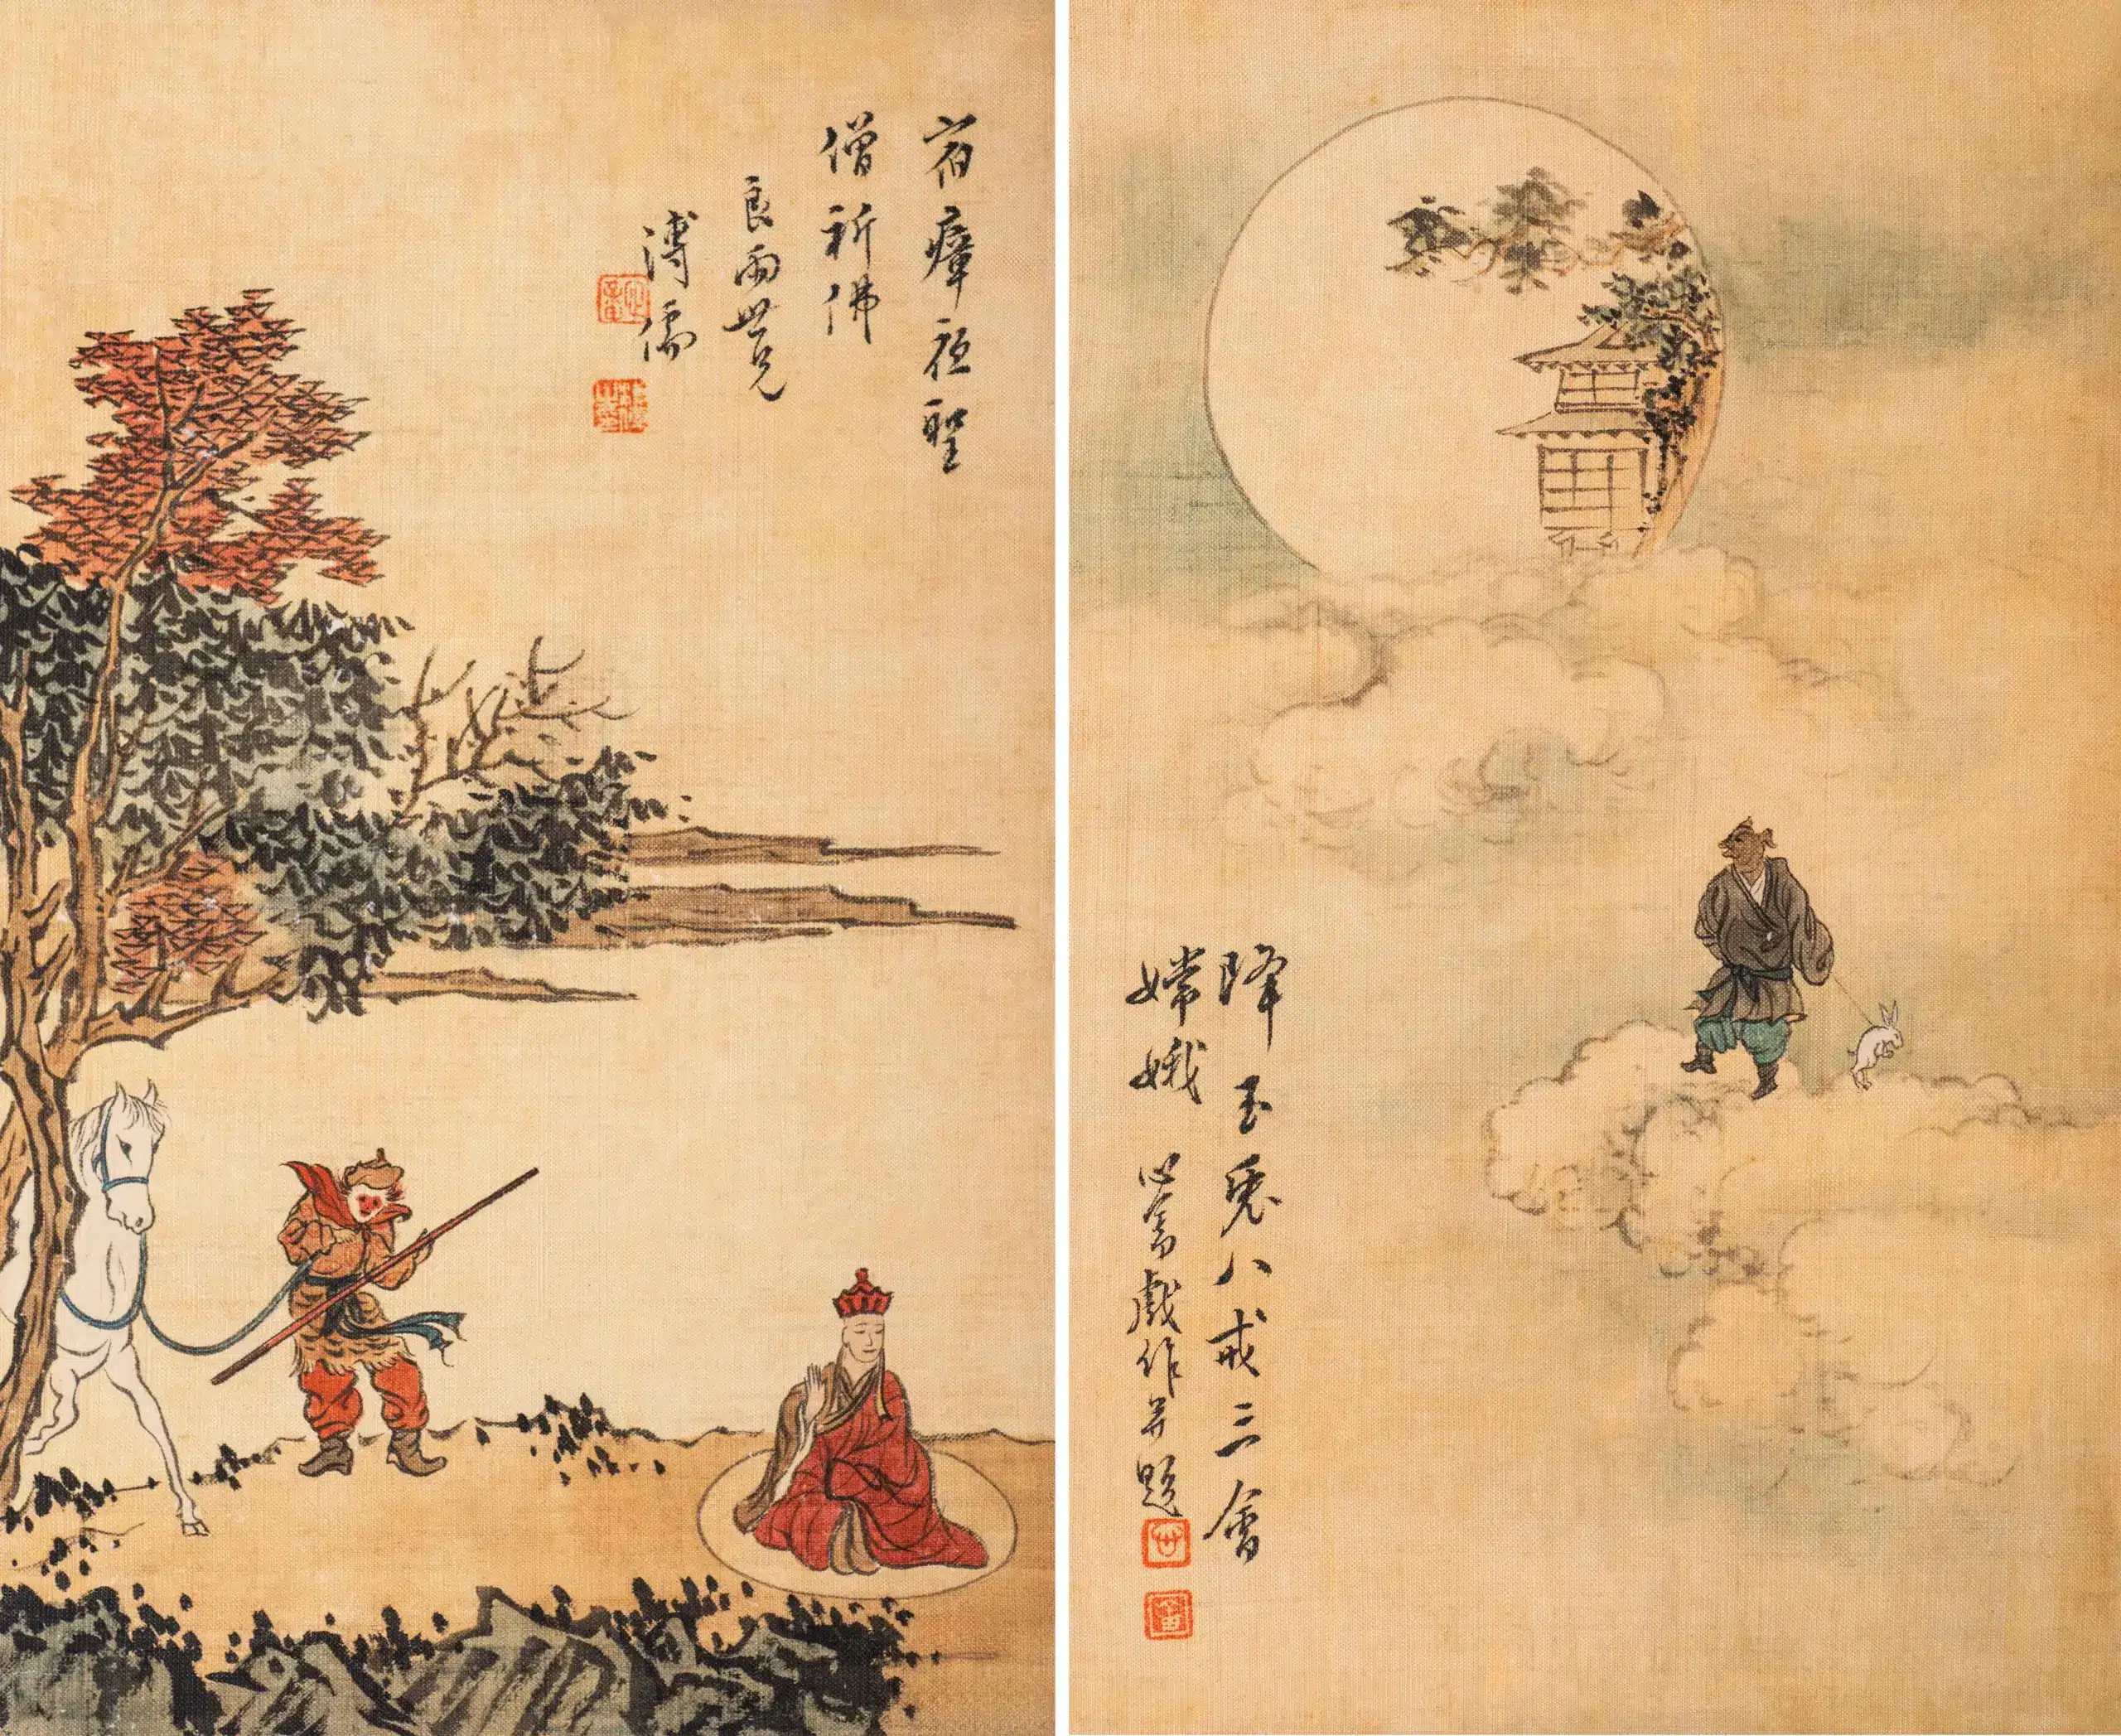 宿瘴夜聖
僧祈佛
良雨世兄
溥儒
降玉兔八戒三會
嫦娥 心畬戲作并題